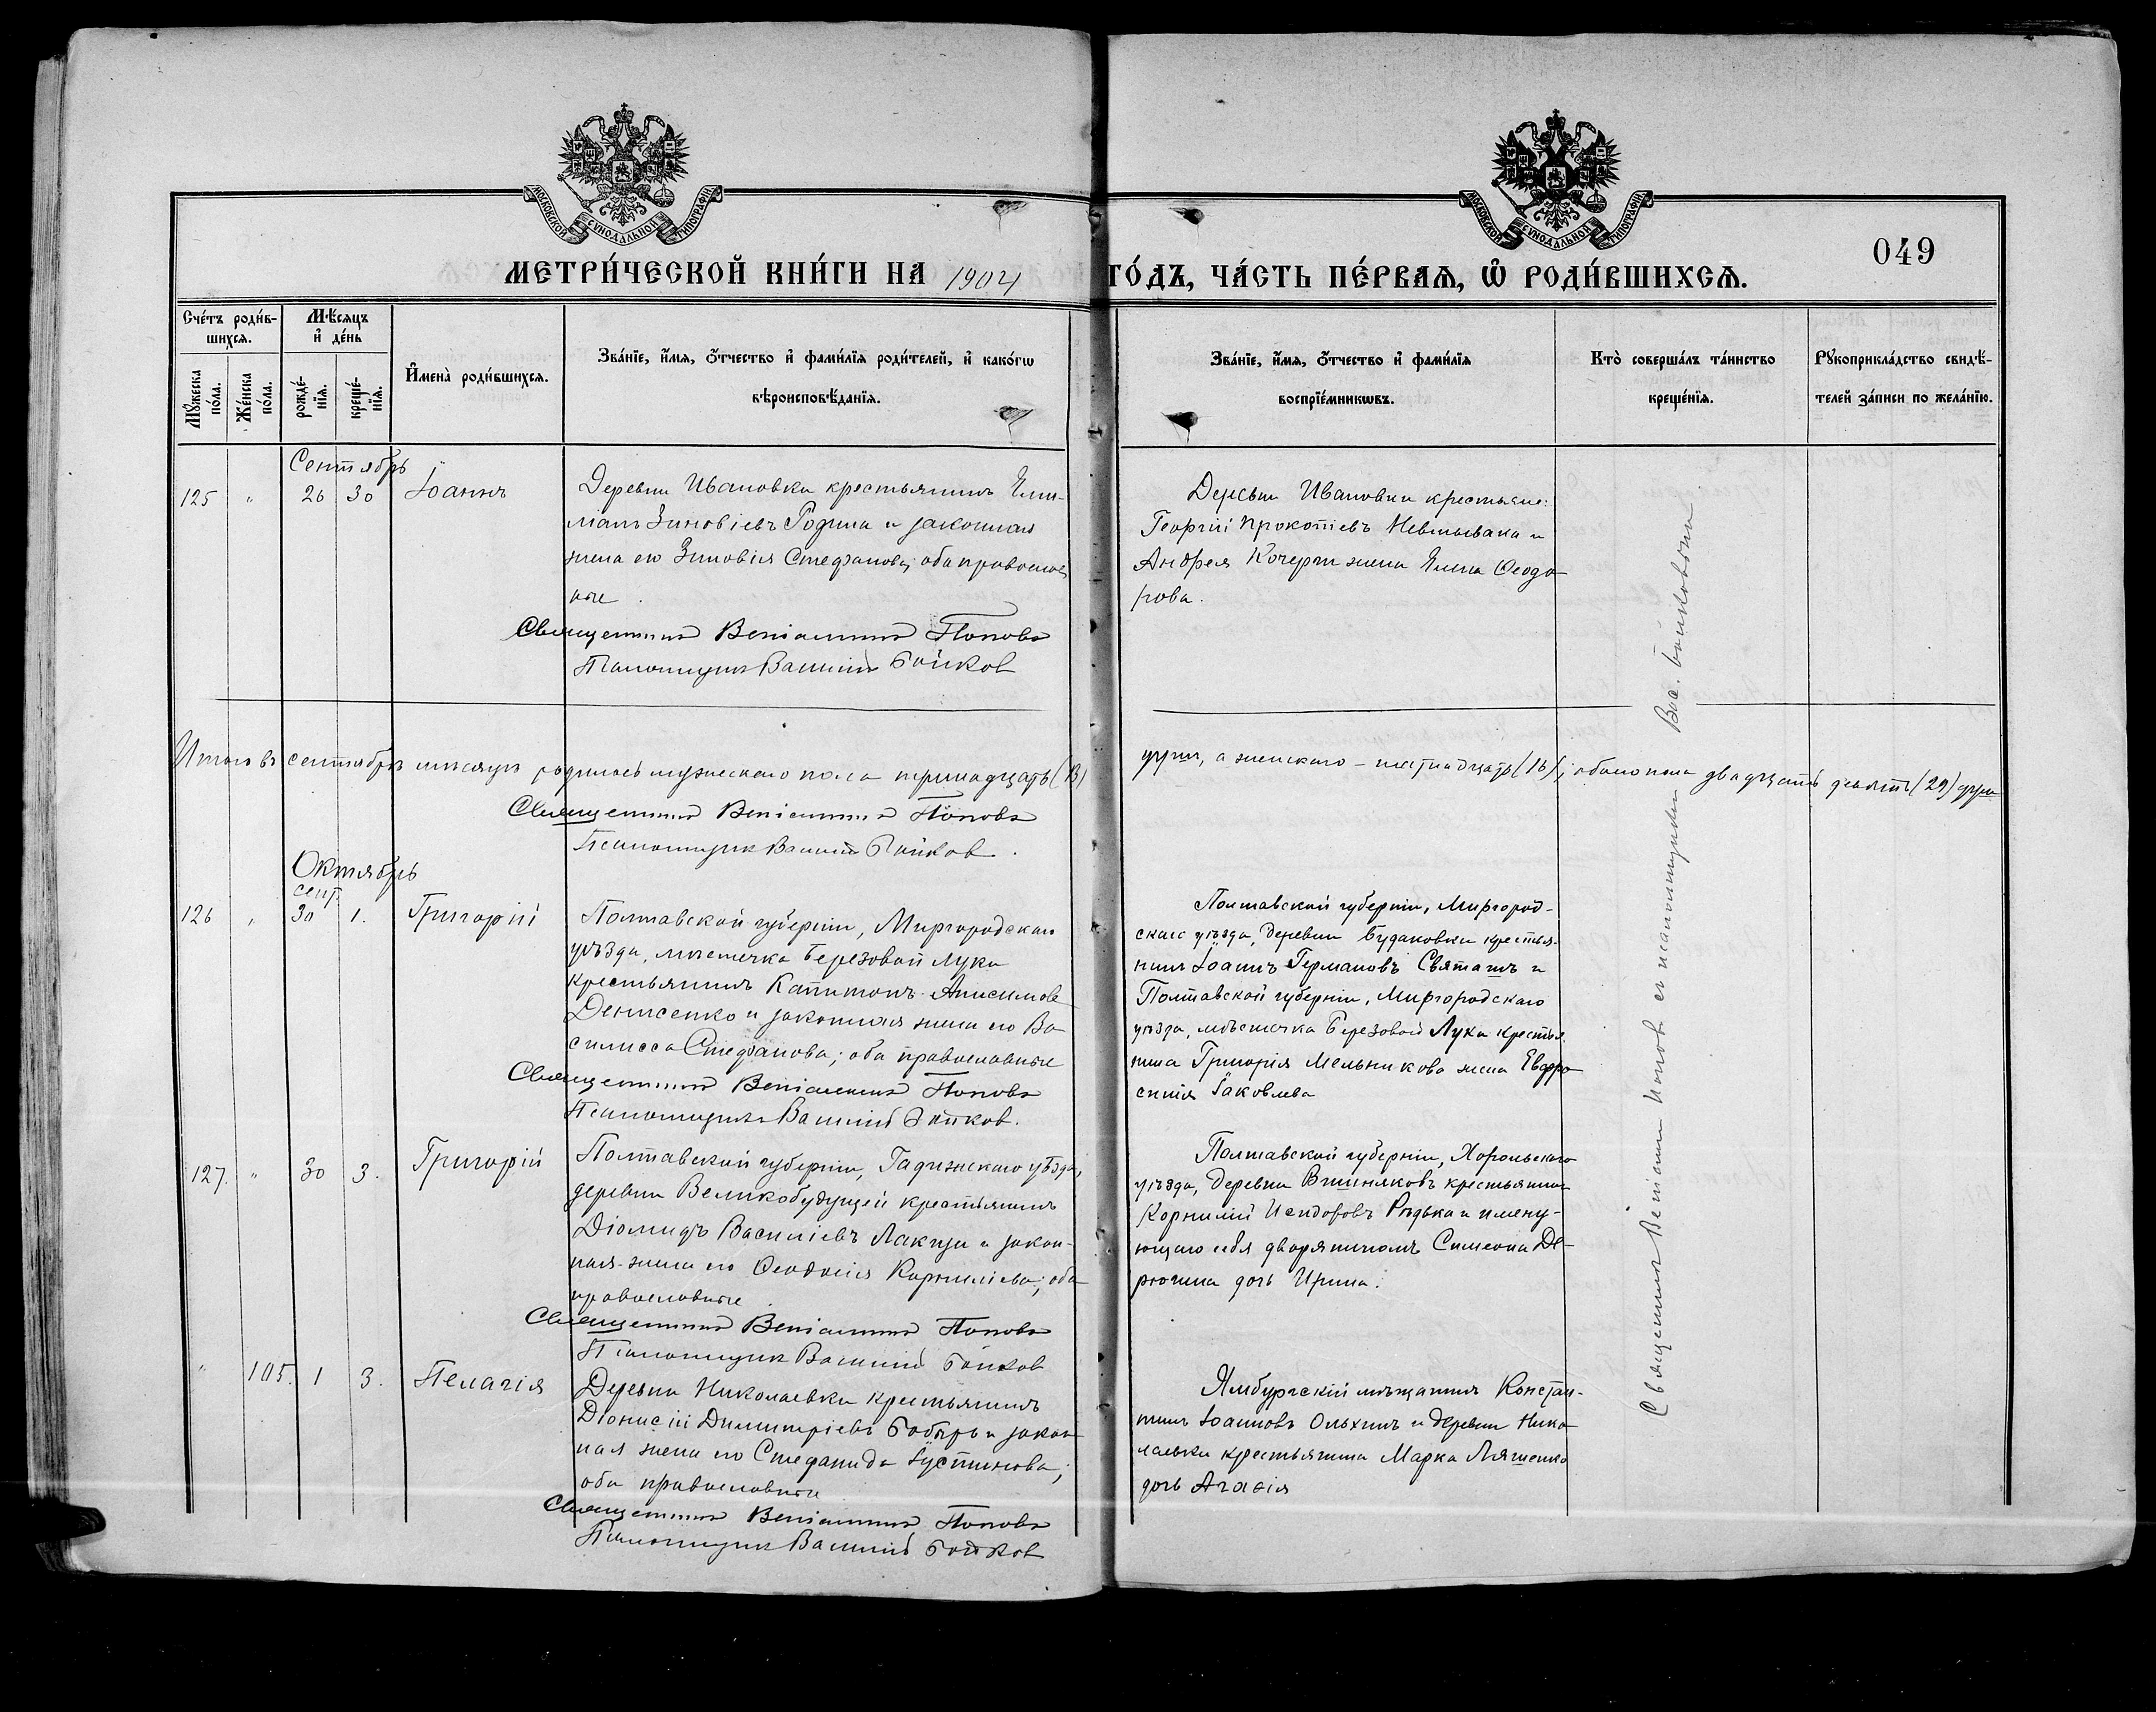 МОСКОВСКОЙ СѴНОДАЛЬНОЙ ТИПОГРАФІИ
МОСКОВСКОЙ СѴНОДАЛЬНОЙ ТИПОГРАФІИ
049
МЕТРИ́ЧЕСКОЙ КНИ́ГИ НА 1904 ГО́ДЪ, ЧА́СТЬ ПЕ́РВАѦ, Ѡ҆ РОДИ́ВШИХСѦ.
Сче́тъ роди́в-
шихсѧ.
Мꙋ́жеска по́ла.
Же́нска по́ла.
Мѣ́сѧцъ
и҆ де́нь
рожде́-
нїѧ.
креще́-
нїѧ.
И҆мена̀ роди́вшихсѧ.
Зва́нїе, и҆́мѧ, ѻ҆́тчество и҆ фами́лїѧ роди́телей, и҆ како́гѡ
вѣроисповѣ́данїѧ.
Зва́нїе, и҆́мѧ, ѻ҆́тчество и҆ фами́лїѧ
воспрїе́мникѡвъ.
Кто̀ соверша́лъ та́инство
креще́нїѧ.
Рꙋкоприкла́дство свидѣ́-
телей за́писи по жела́нїю.
Сентябрь
125 " 26 30 Іоаннъ
Деревни Ивановки крестьянинъ Еми-
ліанъ Зиновіевъ Родина и законная
жена его Зиновія Стефанова, оба православ
ные.
Священникъ Веніаминъ Поповъ
Псаломщикъ Василій Бойков
Деревни Ивановки крестьяне:
Георгій Прокопіевъ и
Андрея Кочерги жена Елена Ѳеодо-
рова.
Итого въ сентябрѣ мѣсяцѣ родилось мужескаго пола тринадцать (13)
душъ, а женскаго – шестнадцать (16); обоего пола двадцать девять (29) душъ
Священникъ Веніаминъ Поповъ
Псаломщикъ Василій Бойков.
Октябрь
сент.
126 " 30 1. Григорій
Полтавской губерніи, Миргородскаго
уѣзда, мѣстечка Березовой Луки
крестьянинъ Капитонъ Анисимовъ
Денисенко и законная жена его Ва-
силисса Стефанова; оба православные
Священникъ Веніаминъ Поповъ
Псаломщикъ Василій Бойков.
Полтавской губерніи, Миргород-
скаго уѣзда, деревни Будаковки крестья-
нинъ Іоаннъ Германовъ Святашъ и
Полтавской губерніи, Миргородскаго
уѣзда, мѣстечка Березовой Луки крестья-
нина Григорія Мельникова жена Евфро-
синія Іаковлева
127. " 30 3. Григорій
Полтавской губерніи, Гадячскаго уѣзда,
деревни Великобудущей крестьянинъ
Діомидъ Василіевъ Лакиза и закон-
ная жена его Ѳеодосія Корниліева; оба
православные
Священникъ Веніаминъ Поповъ
Псаломщикъ Василій Бойков
Полтавской губерніи, Хорольскаго
уѣзда, деревни Вишняковъ крестьянинъ
Корнилій Исидоровъ Рѣдька и имену-
ющаго себя дворяниномъ Симеона Де-
рюгина дочь Ирина.
" 105. 1 3. Пелагія
Деревни Николаевки крестьянинъ
Діонисій Димитріевъ Бобырь и закон
ная жена его Стефанида Іустинова;
оба православные
Священникъ Веніаминъ Поповъ
Псаломщикъ Василій Бойков
Ямбургскій мѣщанинъ Констан-
тинъ Іоанновъ Ольхинъ и деревни Нико-
лаевки крестьянина Марка Ляшенко
дочь Агаѳія
Священникъ Веніаминъ Поповъ съ псаломщикомъ Вас. Бойковымъ